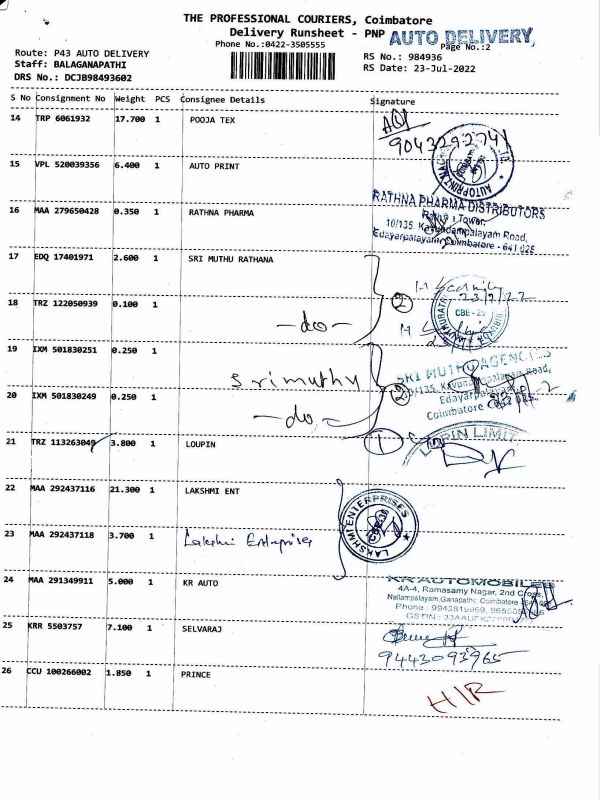 THE PROFESSIONAL COURIERS, Coimbatore
Delivery Runsheet - PNP AUTO DELIVERY,
Phone No.:0422-3505555 Page No.:2
Route: P43 AUTO DELIVERY RS No.: 984936
Staff: BALAGANAPATHI RS Date: 23-Jul-2022
DRS No.: DCJB98493602
S No Consignment No Weight PCS Consignee Details Signature
14 TRP 6061932 17.700 1 POOJA TEX
9043292741
15 VPL 520039356 6.400 1 AUTO PRINT
AUTOPRINT
16 MAA 279650428 0.350 1 RATHNA PHARMA
RATHNA PHARMA DISTRIBUTORS
Tower,
10/135, Kavundampalayam Road,
Edayarpalayam, Coimbatore - 641 025
17 EDQ 17401971 2.600 1 SRI MUTHU RATHANA
23/7/22
CBE-25
18 TRZ 122050939 0.100 1
-do-
2
19 IXM 501830251 0.250 1
Srimuthu
SRI MUTHU AGENCIES
10/135, Kavundampalayam Road,
20 IXM 501830249 0.250 1
-do-
2
Coimbatore
21 TRZ 113263049 3.800 1 LOUPIN
1
LUPIN LIMIT
22 MAA 292437116 21.300 1 LAKSHMI ENT
LAKSHMI ENTERPRISES
23 MAA 292437118 3.700 1 Lakshmi Enterprises
24 MAA 291349911 5.000 1 KR AUTO
KR AUTOMOBILES
4A-4, Ramasamy Nagar, 2nd Cross,
Nallampalayam, Ganapathy, Coimbatore
Phone :
GSTIN :
25 KRR 5503757 7.100 1 SELVARAJ
9443093965
26 CCU 100266002 1.850 1 PRINCE
H/R